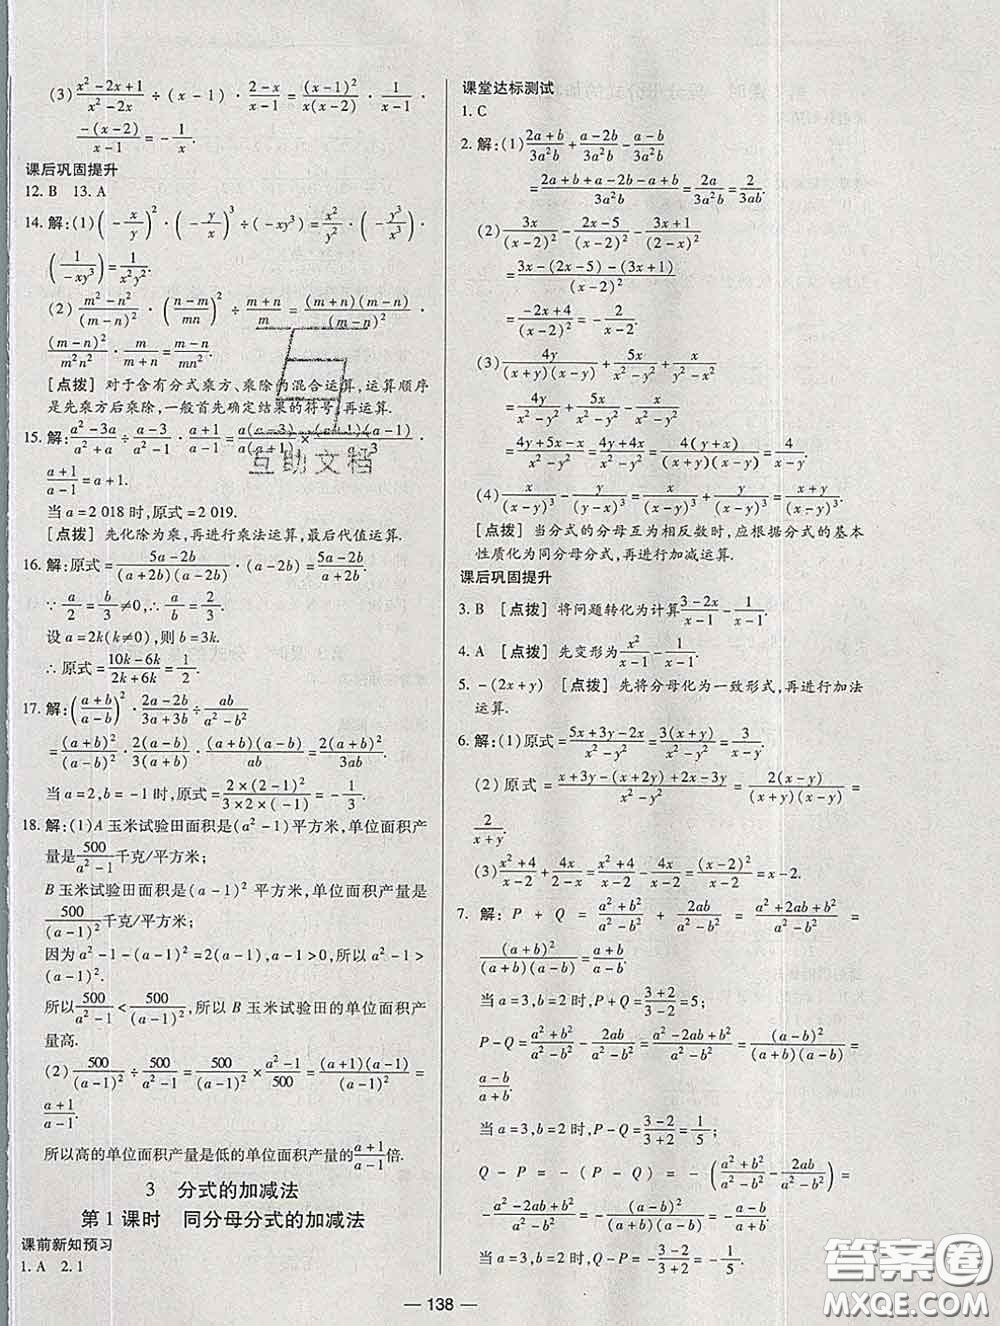 (3) (x²-2x+1)/(x²-2x) ÷ (x-1) · (2-x)/(x-1) = (x-1)²/(x(x-2)) · 1/(x-1) ·
-(x-2)/(x-1) = -1/x.
课后巩固提升
12. B 13. A
14. 解:(1)(-x/y)² · (-y/x)³ ÷ (-xy³) = x²/y² · (-y³/x³) ·
(1/(-xy³)) = 1/(x²y²).
(2) (m²-n²)/(m-n)² · ((n-m)/mn)² ÷ (m+n)/m = (m+n)(m-n)/(m-n)² ·
(m-n)²/(m²n²) · m/(m+n) = (m-n)/(mn²).
[点拨] 对于含有分式乘方、乘除的混合运算,运算顺序
是先乘方后乘除,一般首先确定结果的符号,再运算.
15. 解:(a²-3a)/(a²+a) ÷ (a-3)/(a²-1) · (a+1)/(a-1) = a(a-3)/(a(a+1)) × (a+1)(a-1)/(a-3) ·
(a+1)/(a-1) = a+1.
当 a=2 018 时,原式=2 019.
[点拨] 先化除为乘,再进行乘法运算,最后代值运算.
16. 解:原式 = (5a-2b)/((a+2b)(a-2b)) · (a-2b) = (5a-2b)/(a+2b).
∵ a/2 = b/3 ≠ 0, ∴ a/b = 2/3.
设 a=2k(k≠0),则 b=3k.
∴ 原式 = (10k-6k)/(2k+6k) = 1/2.
17. 解:((a+b)/(a-b))² · (2a-2b)/(3a+3b) ÷ ab/(a²-b²)
= (a+b)²/(a-b)² · 2(a-b)/(3(a+b)) · (a+b)(a-b)/ab = 2(a+b)²/(3ab).
当 a=2,b=-1 时,原式 = 2×(2-1)²/(3×2×(-1)) = -1/3.
18. 解:(1)A 玉米试验田面积是(a²-1)平方米,单位面积产
量是 500/(a²-1) 千克/平方米;
B 玉米试验田面积是(a-1)² 平方米,单位面积产量是
500/(a-1)² 千克/平方米;
因为 a²-1-(a-1)²=2(a-1),a-1>0,所以 a²-1>
(a-1)².
所以 500/(a²-1) < 500/(a-1)²,所以 B 玉米试验田的单位面积产
量高.
(2) 500/(a-1)² ÷ 500/(a²-1) = 500/(a-1)² × (a²-1)/500 = (a+1)(a-1)/(a-1)² =
(a+1)/(a-1).
所以高的单位面积产量是低的单位面积产量的 (a+1)/(a-1) 倍.
3 分式的加减法
第 1 课时 同分母分式的加减法
课前新知预习
1. A 2. 1
课堂达标测试
1. C
2. 解:(1) (2a+b)/(3a²b) + (a-2b)/(3a²b) - (a-b)/(3a²b)
= (2a+b+a-2b-a+b)/(3a²b) = 2a/(3a²b) = 2/(3ab).
(2) 3x/(x-2)² - (2x-5)/(x-2)² - (3x+1)/(x-2)²
= (3x-(2x-5)-(3x+1))/(x-2)²
= (-2x+4)/(x-2)² = -2/(x-2).
(3) 4y/((x+y)(x-y)) + 5x/(x²-y²) - x/(x²-y²)
= 4y/(x²-y²) + 5x/(x²-y²) - x/(x²-y²)
= (4y+5x-x)/(x²-y²) = (4y+4x)/(x²-y²) = 4(y+x)/((x+y)(x-y)) = 4/(x-y).
(4) x/(x-y)³ - y/(y-x)³ = x/(x-y)³ + y/(x-y)³ = (x+y)/(x-y)³.
[点拨] 当分式的分母互为相反数时,应根据分式的基本
性质化为同分母分式,再进行加减运算.
课后巩固提升
3. B [点拨] 将问题转化为计算 (3-2x)/(x-1) - 1/(x-1).
4. A [点拨] 先变形为 x²/(x-1) - 1/(x-1).
5. -(2x+y) [点拨] 先将分母化为一致形式,再进行加法
运算.
6. 解:(1)原式 = (5x+3y-2x)/(x²-y²) = 3(x+y)/(x²-y²) = 3/(x-y).
(2) 原式 = (x+3y-(x+2y)+2x-3y)/(x²-y²) = 2(x-y)/((x+y)(x-y)) =
2/(x+y).
(3) (x²+4)/(x-2) + 4x/(2-x) = (x²+4)/(x-2) - 4x/(x-2) = (x-2)²/(x-2) = x-2.
7. 解: P + Q = (a²+b²)/(a²-b²) + 2ab/(a²-b²) = (a²+2ab+b²)/(a²-b²) =
(a+b)²/((a+b)(a-b)) = (a+b)/(a-b).
当 a=3,b=2 时,P+Q = (3+2)/(3-2) = 5;
P-Q = (a²+b²)/(a²-b²) - 2ab/(a²-b²) = (a²-2ab+b²)/(a²-b²) = (a-b)²/((a+b)(a-b)) =
(a-b)/(a+b).
当 a=3,b=2 时,P-Q = (3-2)/(3+2) = 1/5;
Q - P = -(P-Q) = -((a²+b²)/(a²-b²) - 2ab/(a²-b²)) =
-(a²-2ab+b²)/(a²-b²) = -(a-b)²/((a+b)(a-b)) = -(a-b)/(a+b).
当 a=3,b=2 时,Q-P = -(3-2)/(3+2) = -1/5.
— 138 —
互助文档
答案圈
MXQE.COM